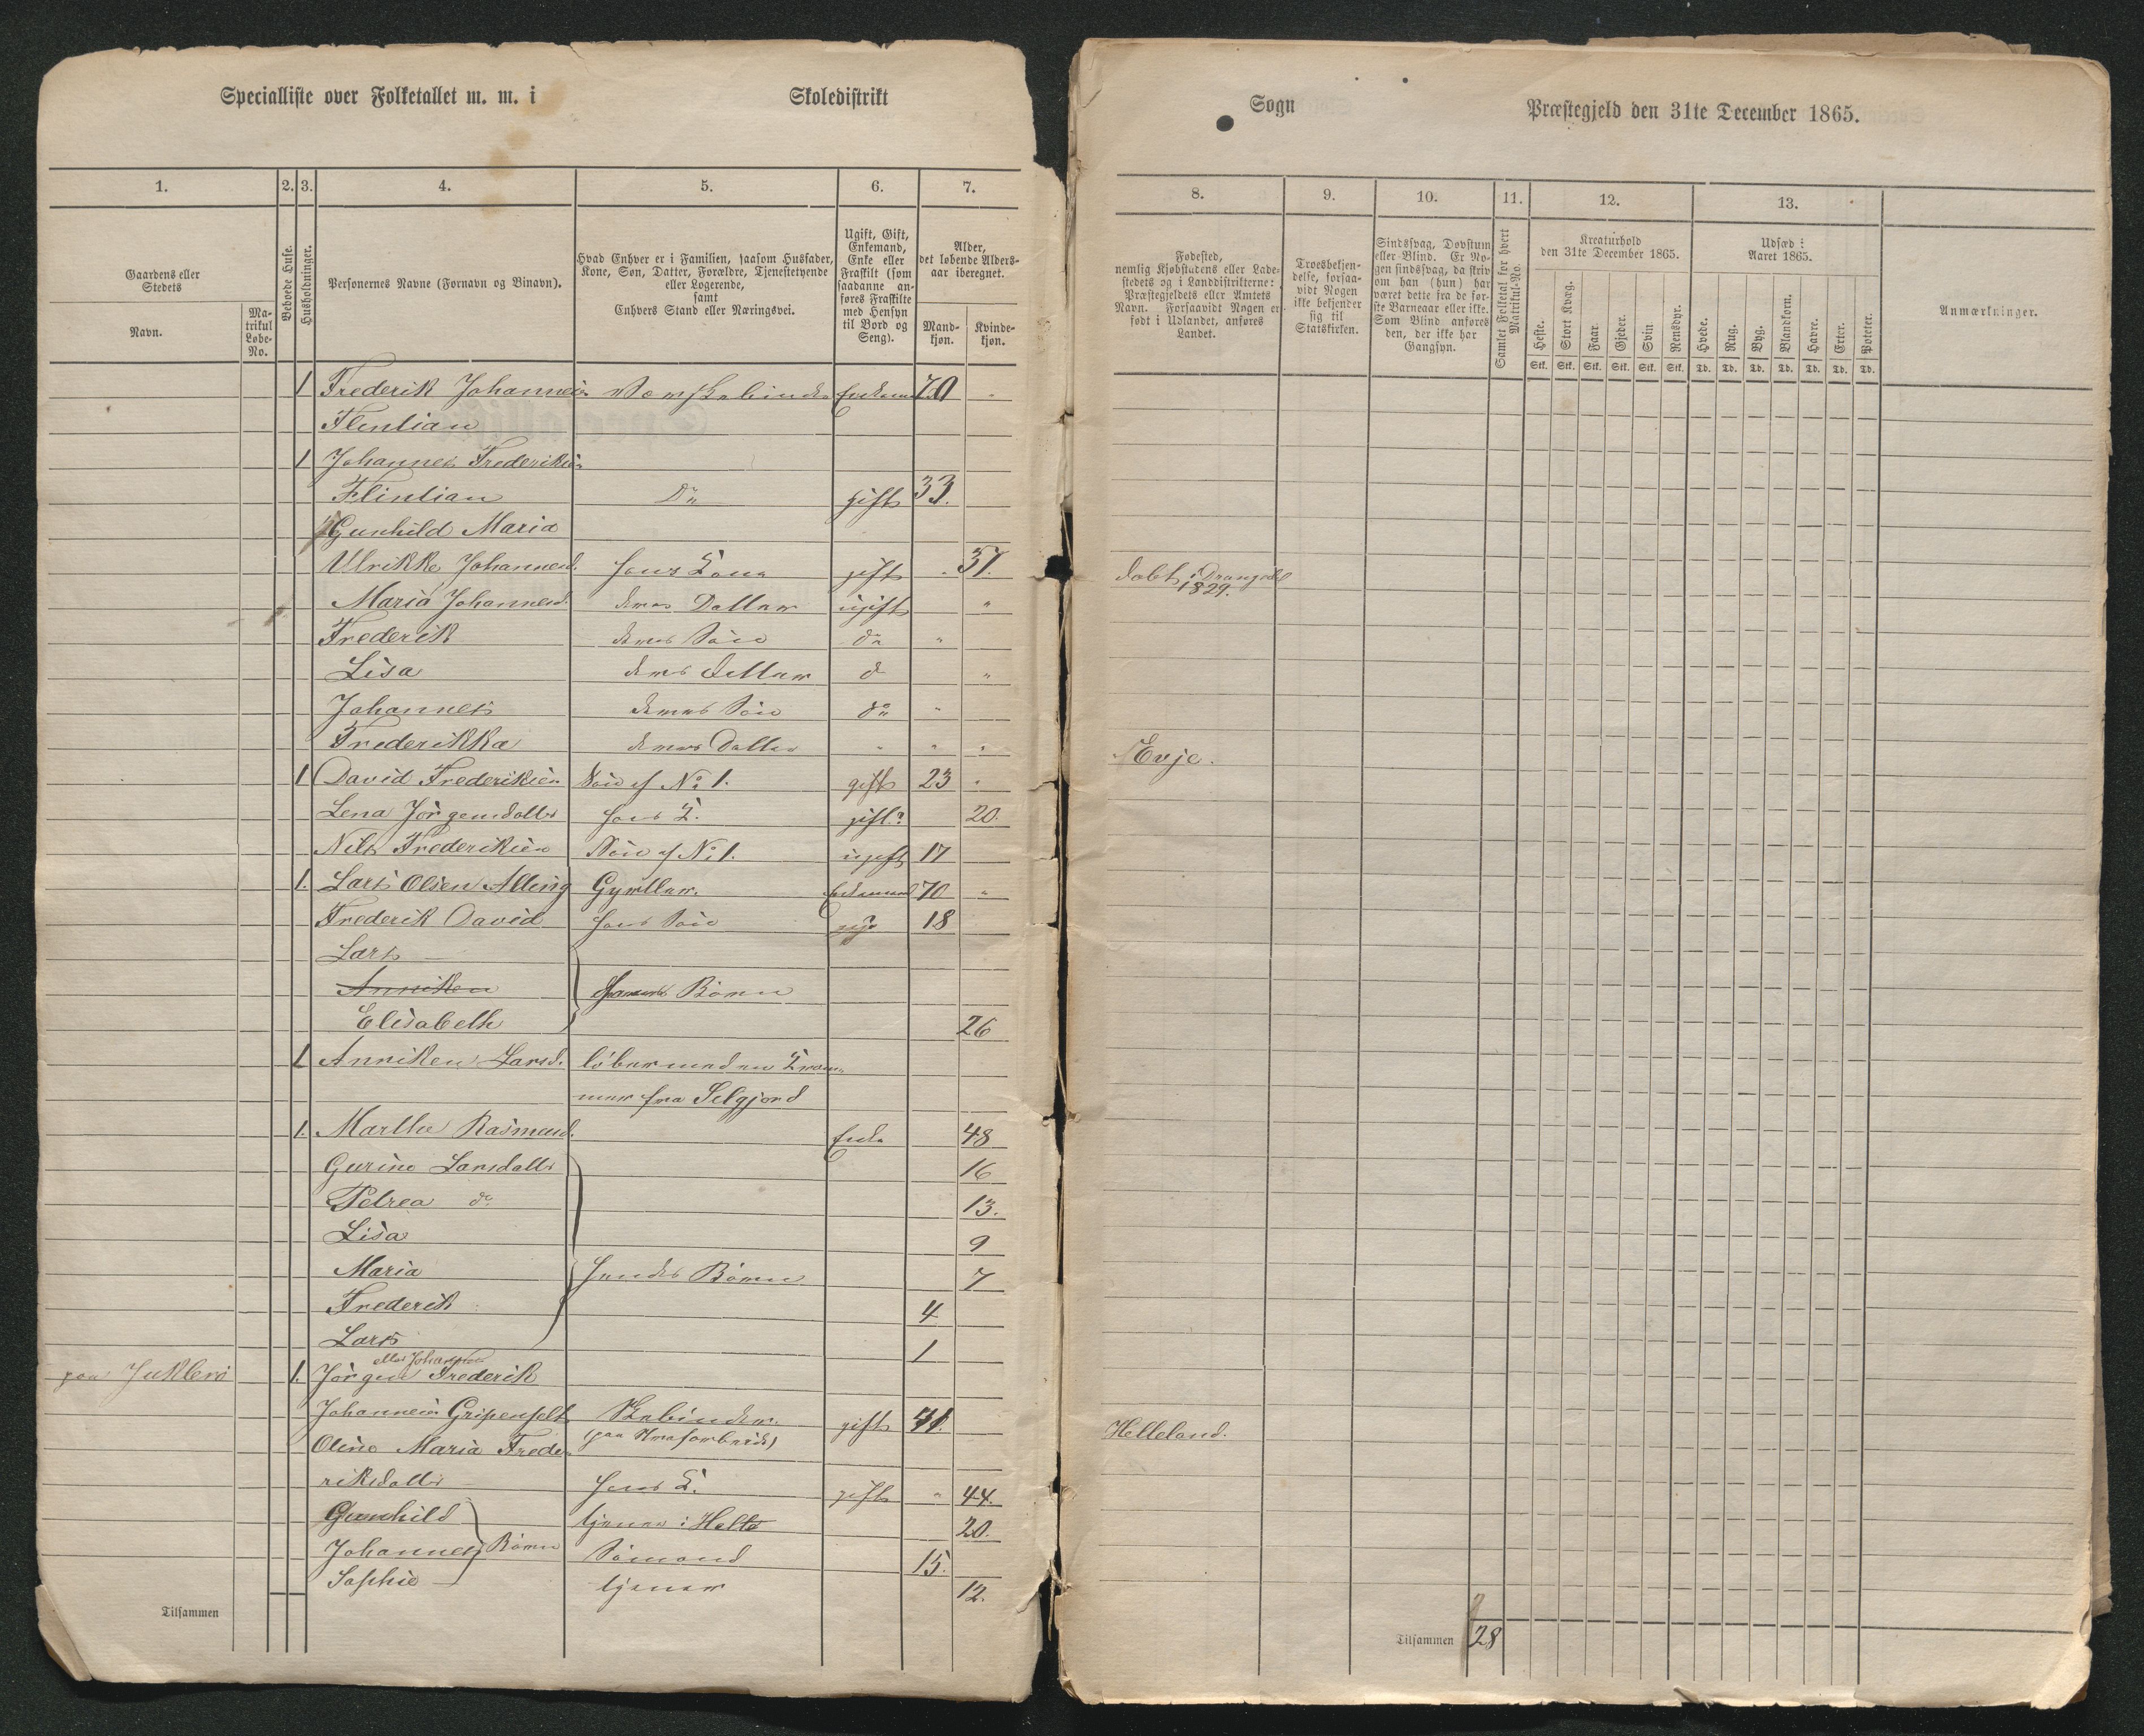 Specialliste over Folketallet m. m. i Skoledistrikt
Sogn Præstegjeld den 31te December 1865.
1. 2. 3. 4. 5. 6. 7.
8. 9. 10. 11. 12. 13.
Gaardens eller
Stedets
Navn.
Ma-
trikul
Løbe-
No.
Beboede Huse.
Husholdninger.
Personernes Navne (Fornavn og Binavn).
Hvad Enhver er i Familien, saasom Husfader,
Kone, Søn, Datter, Forældre, Tjenestetyende
eller Logerende,
samt
Enhvers Stand eller Næringsvei.
Ugift, Gift,
Enkemand,
Enke eller
Fraskilt (som
saadanne an-
føres Fraskilte
med Hensyn
til Bord og
Seng).
Alder,
det løbende Alders-
aar iberegnet.
Mand-
kjøn.
Kvinde-
kjøn.
Fødested,
nemlig Kjøbstadens eller Lade-
stedets og i Landdistrikterne:
Præstegjeldets eller Amtets
Navn. Forsaavidt Nogen er
født i Udlandet, anføres
Landet.
Troesbekjen-
delse, forsaa-
vidt Nogen
ikke bekjender
sig til
Statskirken.
Sindssvag, Døvstum
eller Blind. Er No-
gen sindssvag, da skriv
om han (hun) har
været dette fra de før-
ste Barneaar eller ikke.
Som Blind anføres
den, der ikke har
Gangsyn.
Samlet Folketal for hvert
Matrikul-No.
Kreaturhold
den 31te December 1865.
Heste. Stort Kvæg. Faar. Gjeder. Svin Rensdyr.
Stk. Stk. Stk. Stk. Stk. Stk.
Udsæd i
Aaret 1865.
Hvede. Rug. Byg. Blandkorn. Havre. Erter. Poteter.
Td. Td. Td. Td. Td. Td. Td.
Anmærkninger.
1 Frederik Johannesen 70 "
Flintian
1 Johannes Frederiksen
Flintian Do gift 33.
Gunhild Maria
Ulrikke Johannesd. hans K gift " 37. døbt i Drangedal
1829.
Maria Johannesd. deres Datter ugift "
Frederik deres Søn do "
Lisa deres Datter d "
Johannes deres Søn do "
Frederikka deres Datter " " " Evje.
1 David Frederiksen Søn af No 1. gift 23 "
Lena Jörgensdatter hans K. gift? 20.
Nils Frederiksen Søn af No 1. ugift 17
1. Lars Olsen Alling Gjørtler. Enkemand 70 "
Frederik David hans Søn ug? 18
Lars —
Anniken Børn
Elisabeth 26
1 Anniken Larsd. løber med en Kræm-
mer fra Selgjord
1. Marthe Rasmusd. Enke 48
Gurine Larsdatter 16
Petrea do 13.
Lisa 9
Maria hendes Børn 7
Frederik 4
Lars 1
eller Johannes
paa 1. Jörgen Frederik
Johannesen Gripenfelt gift 41.
Oline Maria Frede- Helleland.
riksdatter hans K. gift " 44.
Gunhild tjener i Helle 20.
Johannes Børn Sømand 15.
Sophie — tjener 12.
Tilsammen
Tilsammen 28